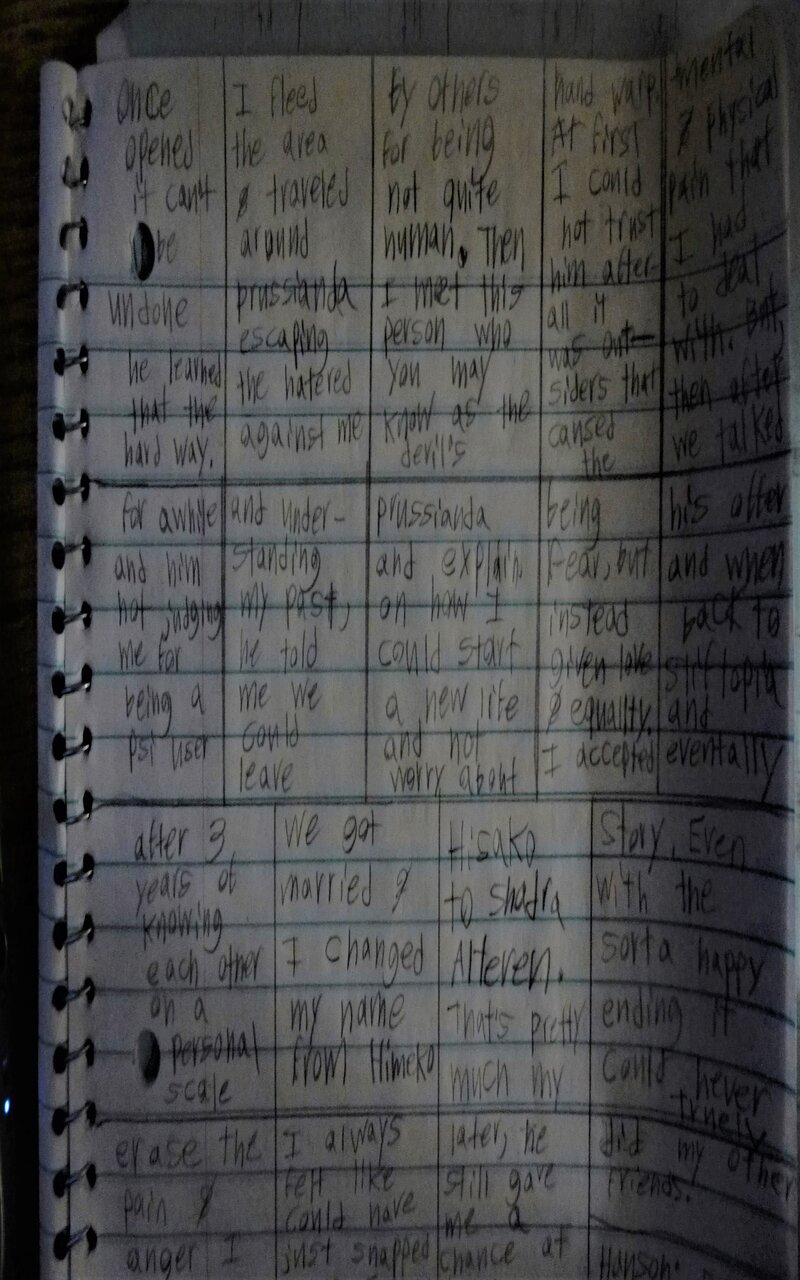 Once
opened
it can't
be
undone
he learned
that the
hard way.
I fleed
the area
& traveled
around
prussianda
escaping
the hatered
against me
by others
for being
not quite
human. Then
I meet this
person who
you may
know as the
devil's
hand warp.
At first
I could
not trust
him after-
all it
was out-
siders that
caused
the
mental
& physical
pain that
I had
to deal
with. But,
then after
we talked
for awhile
and him
not judging
me for
being a
psi user
and under-
standing
my past,
he told
me we
could
leave
prussianda
and explain
on how I
could start
a new life
and not
worry about
being
fear, but
instead
given love
& equality.
I accepted
his offer
and when
back to
and
eventally
after 3
years of
knowing
each other
on a
personal
scale
we got
married &
I changed
my name
from Himeko
Hisako
to Shadra
Alteren.
That's pretty
much my
Story. Even
with the
sorta happy
ending it
could never
truely
erase the
pain &
anger I
I always
felt like
could have
just snapped
later, he
still gave
me a
chance at
did my other
friends.
Hanson: